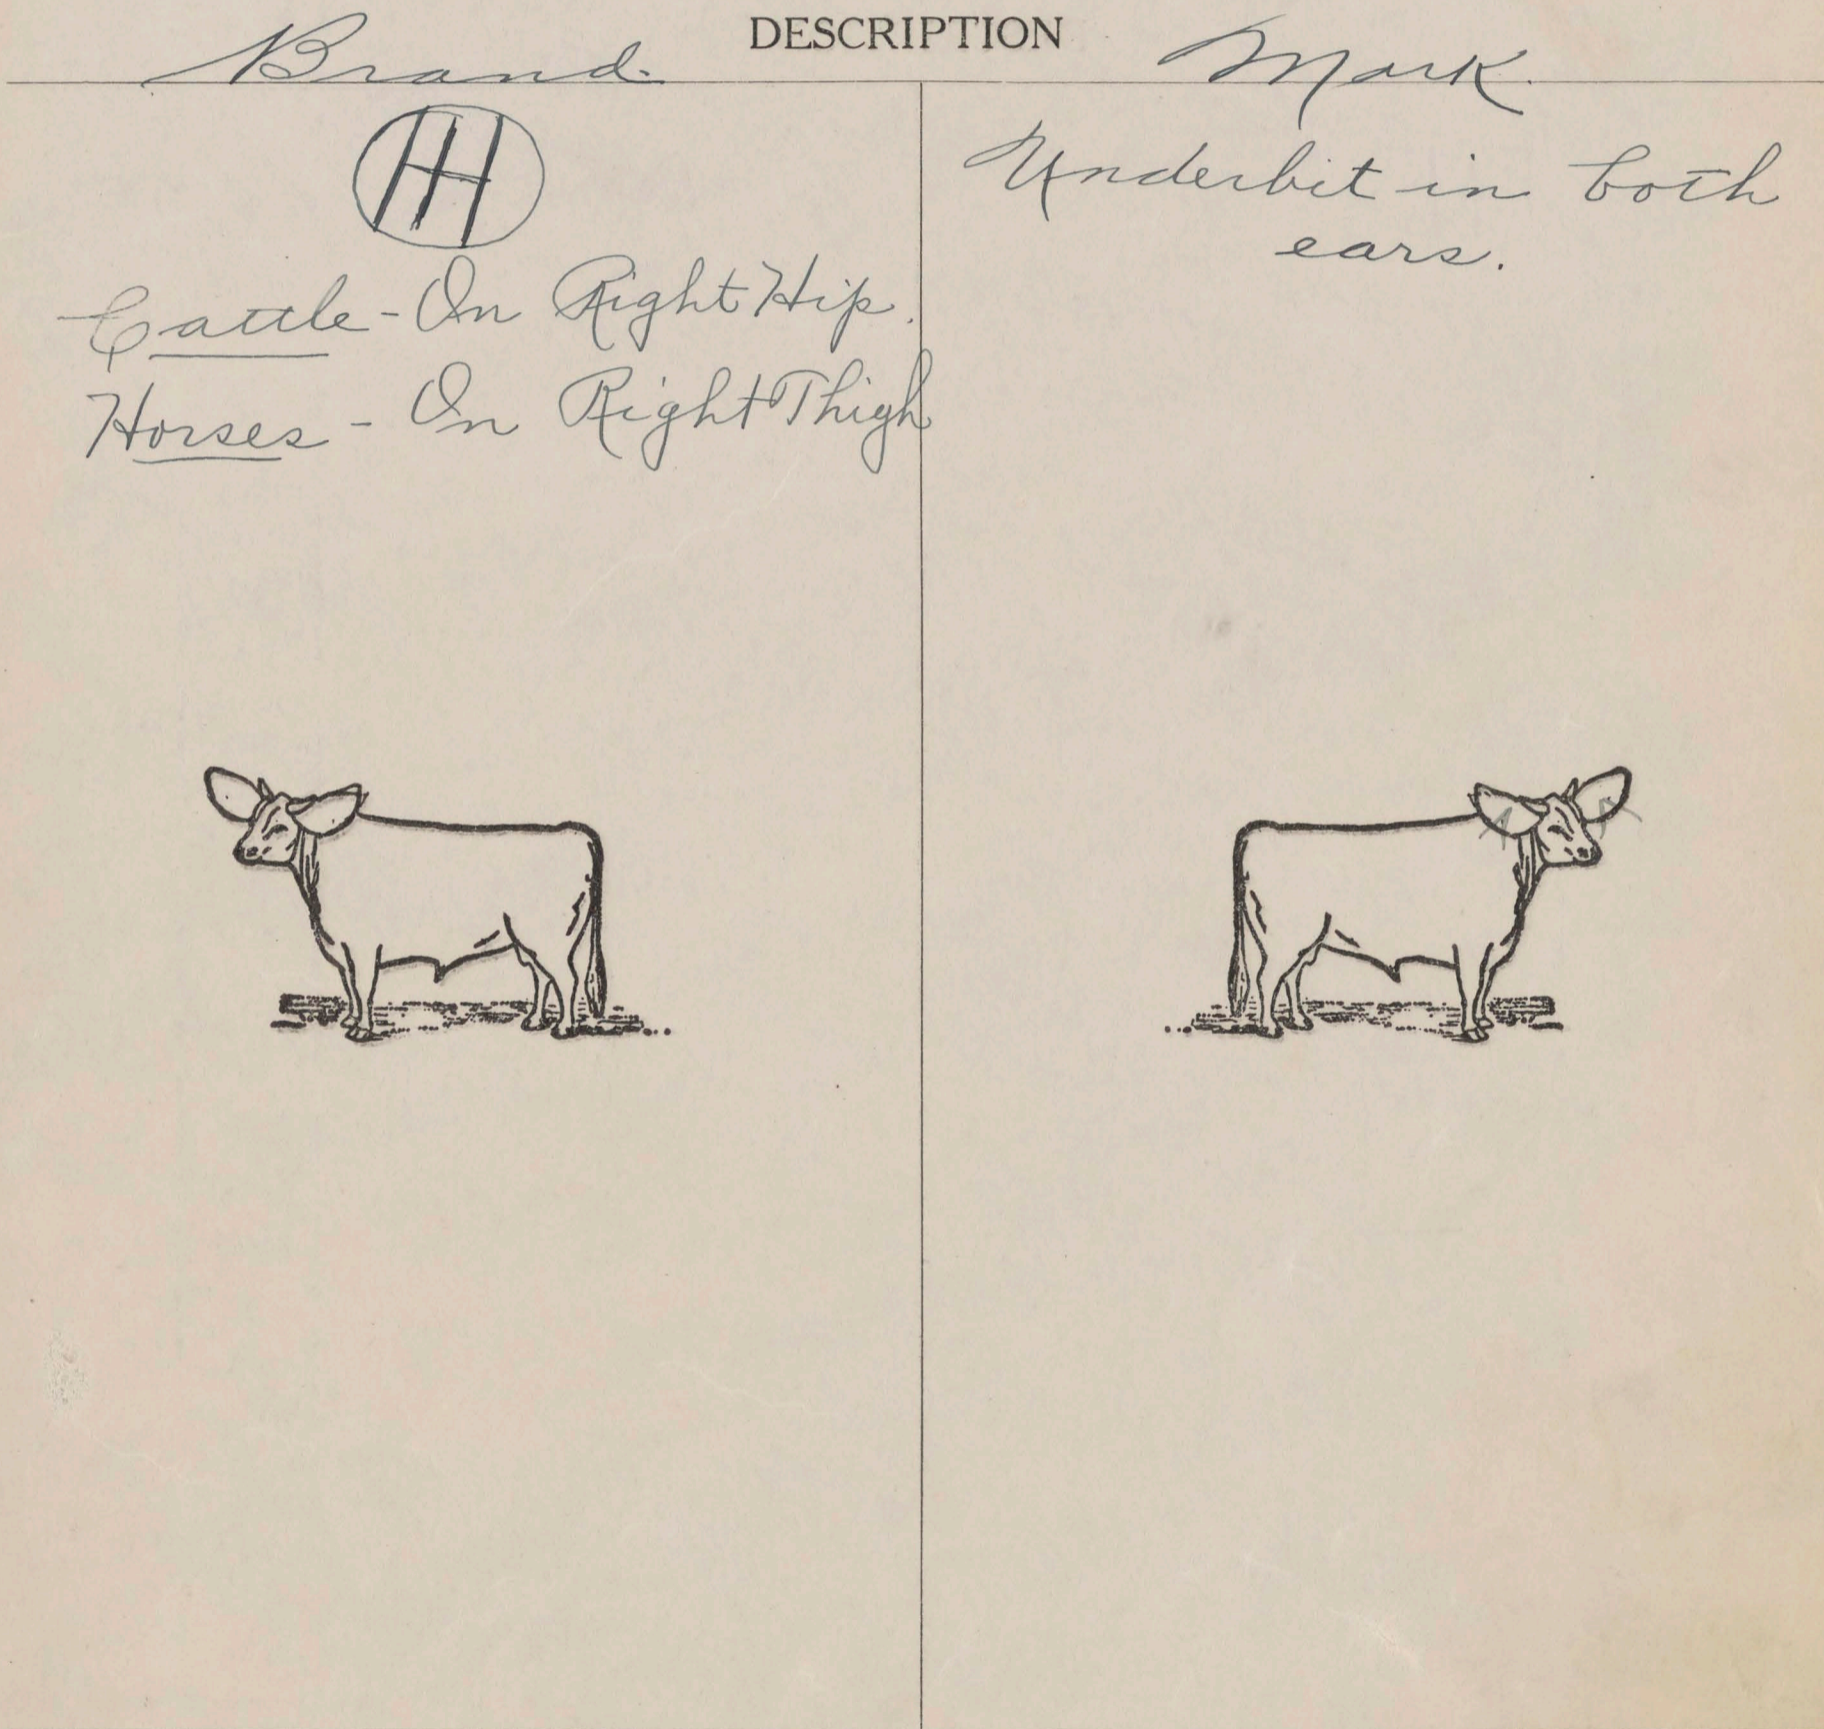 DESCRIPTION
Brand.
Cattle - On Right Hip.
Horses - On Right Thigh
Mark.
Underbit in both
ears.